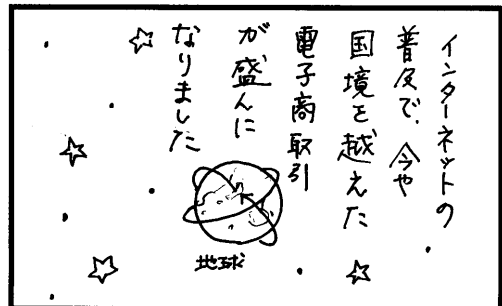 インターネットの
普及で、今や
国境を越えた
電子商取引
が盛んに
なりました
地球